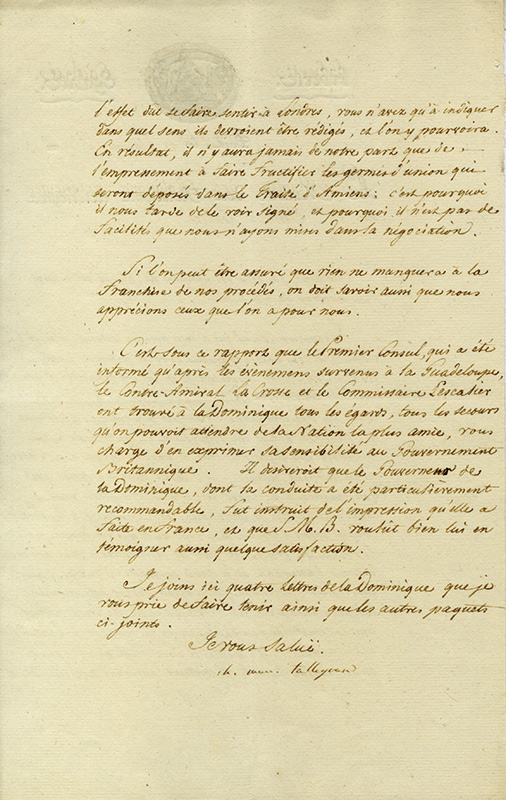 l'effet dût se faire sentir à Londres, vous n'avez qu'à indiquer
dans quel sens ils devroient être rédigés, et l'on y pourvoira.
En résultat, il n'y aura jamais de notre part que de
l'empressement à faire fructifier les germes d'union qui
seront déposés dans le Traité d'Amiens : c'est pourquoi
il nous tarde de le voir signé, et pourquoi il n'est pas de
facilités que nous n'ayons mises dans la négociation.
Si l'on peut être assuré que rien ne manquera à la
franchise de nos procédés, on doit savoir aussi que nous
apprécions ceux que l'on a pour nous.
C'est sous ce rapport que le Premier Consul, qui a été
informé qu'après les évènemens survenus à la Guadeloupe,
le Contre-Amiral La Crosse et le Commissaire Lescalier
ont trouvé à la Dominique tous les égards, tous les secours
qu'on pouvoit attendre de la Nation la plus amie, vous
charge d'en exprimer sa sensibilité au Gouvernement
Britannique. Il desireroit que le Gouverneur de
la Dominique, dont la conduite a été particulièrement
recommandable, fut instruit de l'impression qu'elle a
faite en France, et que S. M. B. voulut bien lui en
témoigner aussi quelque satisfaction.
Je joins ici quatre Lettres de la Dominique que je
vous prie de faire tenir ainsi que les autres paquets
ci-joints.
Je vous Salüe.
ch. mau. talleyrand